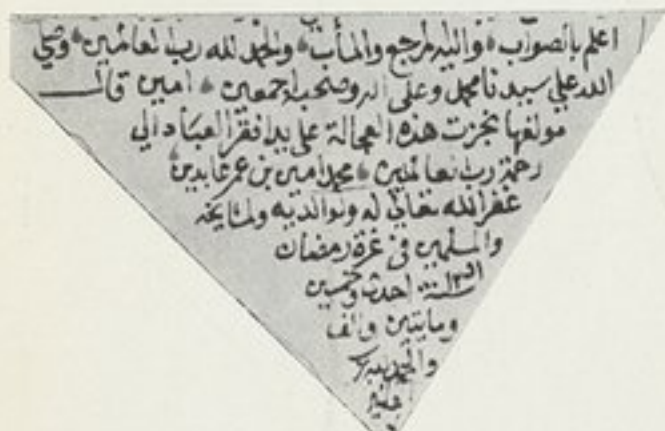 اعلم بالصواب واليه المرجع والمأب والحمد لله رب العالمين وصلى
الله على سيدنا محمد وعلى اله وصحبه اجمعين امين قال
مؤلفها نجزت هذه العجالة على يد افقر العباد الى
رحمة رب العالمين محمد امين بن عمر عابدين
غفر الله تعالى له ولوالديه ولمشايخه
والمسلمين في غرة رمضان
سنة احدى وخمسين
ومايتين والف
والحمد لله